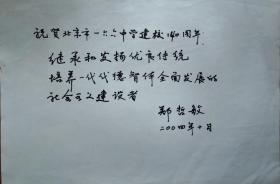 祝贺北京市一六六中学建校140周年
继承和发扬优良传统
培养一代代德智体全面发展的
社会主义建设者
郑哲敏
二〇〇四年十月